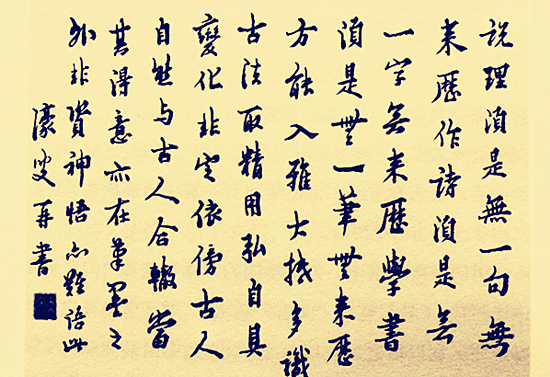 說理須是無一句無
来歷作詩須是無
一字無来歷學書
須是無一筆無来歷
方能入雅大抵多識
古法取精用弘自具
變化非定依傍古人
自然与古人合轍當
其得意亦在筆墨之
外非資神悟亦難語此
濠叟再書